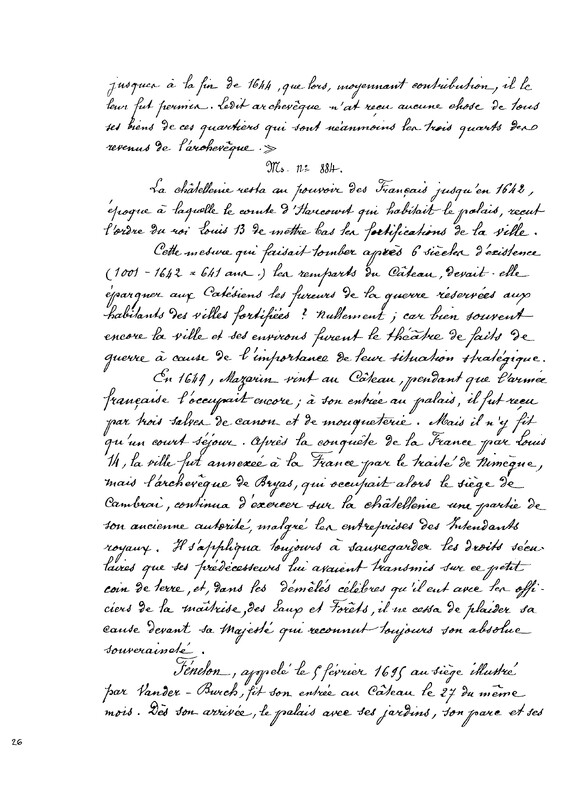 jusques à la fin de 1644, que lors, moyennant contribution, il le
leur fut permis. Ledit archevêque n'at reçu aucune chose de tous
ses biens de ces quartiers qui sont néanmoins les trois quarts des
revenus de l'archevêque. »
Ms. n° 884.
La châtellenie resta au pouvoir des Français jusqu'en 1642,
époque à laquelle le comte d'Harcourt qui habitait le palais, reçut
l'ordre du roi Louis 13 de mettre bas les fortifications de la ville.
Cette mesure qui faisait tomber après 6 siècles d'existence
(1001 - 1642 = 641 ans.) les remparts du Câteau, devait-elle
épargner aux Catésiens les fureurs de la guerre réservées aux
habitants des villes fortifiées ? Nullement ; car bien souvent
encore la ville et ses environs furent le théâtre de faits de
guerre à cause de l'importance de leur situation stratégique.
En 1649, Mazarin vint au Câteau, pendant que l'armée
française l'occupait encore ; à son entrée au palais, il fut reçu
par trois salves de canon et de mousqueterie. Mais il n'y fit
qu'un court séjour. Après la conquête de la France par Louis
14, la ville fut annexée à la France par le traité de Nimègue,
mais l'archevêque de Bryas, qui occupait alors le siège de
Cambrai, continua d'exercer sur la châtellenie une partie de
son ancienne autorité, malgré les entreprises des Intendants
royaux. Il s'appliqua toujours à sauvegarder les droits sécu-
laires que ses prédécesseurs lui avaient transmis sur ce petit
coin de terre, et, dans les démêlés célèbres qu'il eut avec les offi-
ciers de la maîtrise, des Eaux et Forêts, il ne cessa de plaider sa
cause devant sa Majesté qui reconnut toujours son absolue
souveraineté.
Fénelon, appelé le 5 février 1695 au siège illustré
par Vander-Burch, fit son entrée au Câteau le 27 du même
mois. Dès son arrivée, le palais avec ses jardins, son parc et ses
26